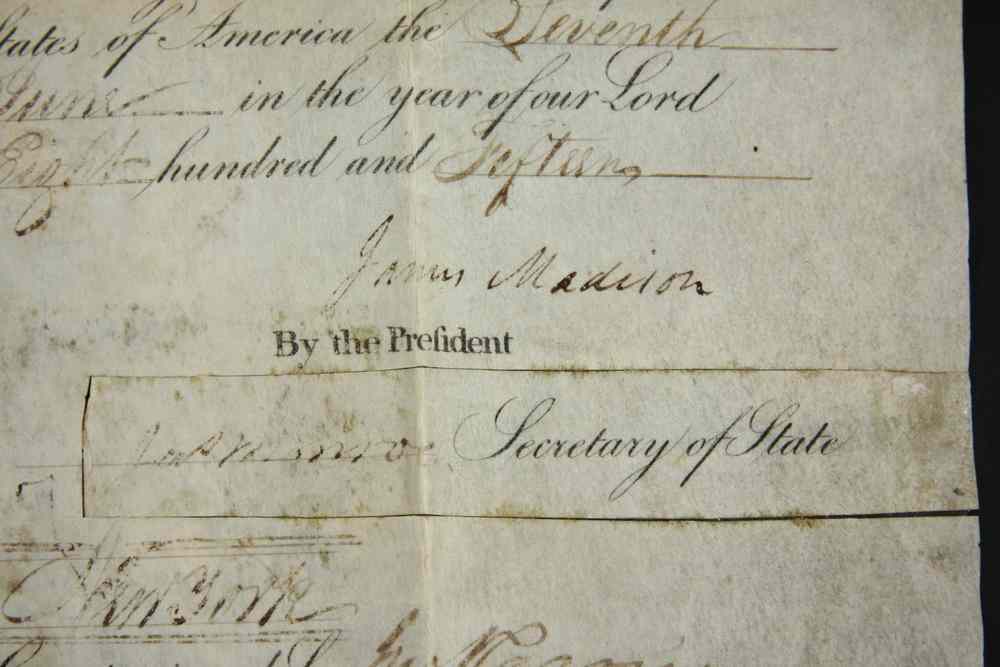 States of America the Seventh
June in the year of our Lord
Eight hundred and Fifteen
James Madison
By the Preſident
Jaˢ Monroe Secretary of State
New York